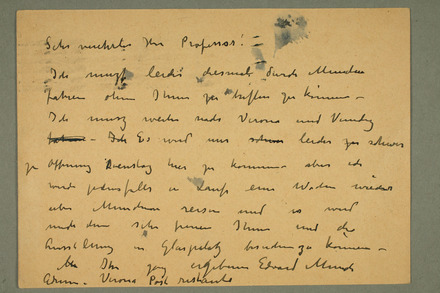 Sehr verehrter Herr Professor!
Ich muß leider diesmal durch München
fahren ohne Ihnen zu treffen zu können –
Ich muss weiter nach Verona und Venedig
– Ich Es wird mir leider zu schwer
zu Öffnung Dienstag hier zu kommen – aber ich
werde jedenfalls in Laufe einer Wochen wieder
über München reisen und es wird
mich dann sehr freuen Ihnen und die
Ausstellung in Glaspalatz besuchen zu können –
Ihr ganz ergebener Edvard Munch
Adresse – Verona Post restante